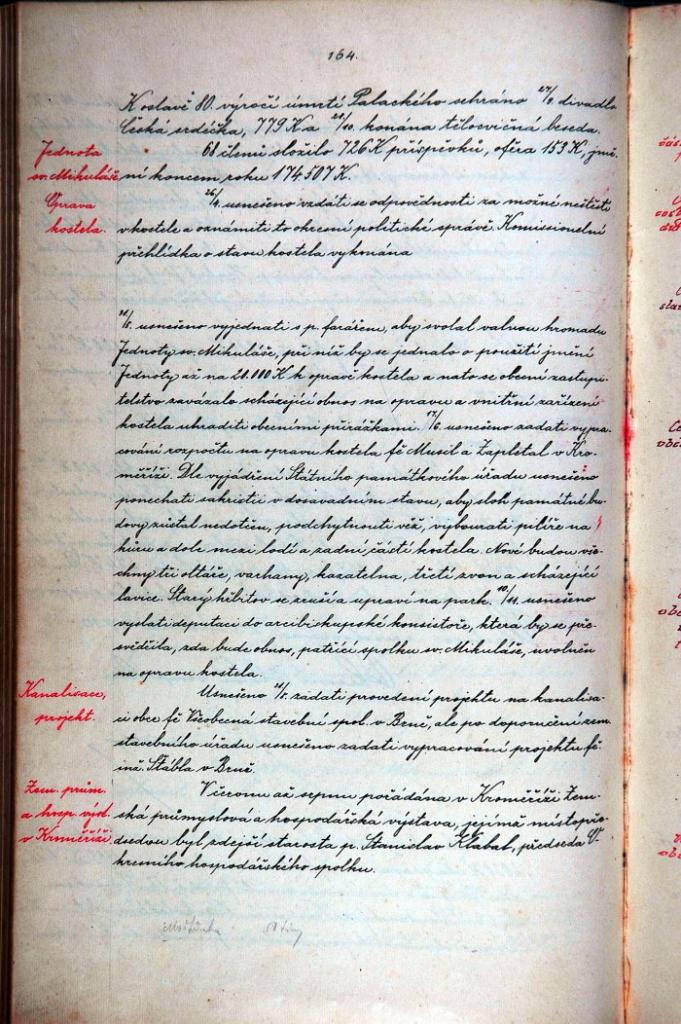 164.
K oslavě 80. výročí úmrtí Palackého sehráno 27/5. divadlo
Česká srdéčka, 779 K a 28/10. konána tělocvičná beseda.
Jednota
sv. Mikuláše
68 členů složilo 726 K příspěvků, oféra 153 K, jmě-
ní koncem roku 174.507 K.
Oprava
kostela.
26/4. usneseno vzdáti se odpovědnosti za možné neštěstí
v kostele a oznámiti to okresní politické správě. Komissionelní
přehlídka o stavu kostela vykonána
usneseno vyjednati s p. farářem, aby svolal valnou hromadu
Jednoty sv. Mikuláše, při níž by se jednalo o použití jmění
Jednoty až na 20.000 K k opravě kostela a nato se obecní zastupi-
telstvo zavázalo scházející obnos na opravu a vnitřní zařízení
kostela uhraditi obecními přirážkami. 17/6. usneseno zadati vypra-
cování rozpočtu na opravu kostela fě Musil a Zapletal v Kro-
měříži. Dle vyjádření Státního památkového úřadu usneseno
ponechati sakristii v dosavadním stavu, aby sloh památné bu-
dovy zůstal nedotčen, podchytnouti věž, vybourati pilíře na
kůru a dole mezi lodí a zadní částí kostela. Nové budou vše-
chny tři oltáře, varhany, kazatelna, třetí zvon a scházející
lavice. Starý hřbitov se zruší a upraví na park. 10/11. usneseno
vyslati deputaci do arcibiskupské konsistoře, která by se pře-
svědčila, zda bude obnos, patřící spolku sv. Mikuláše, uvolněn
na opravu kostela.
Kanalisace,
projekt.
Usneseno zadati provedení projektu na kanalisa-
ci obce fě Všeobecná stavební spol. v Brně, ale po doporučení zem.
stavebního úřadu usneseno zadati vypracování projektu fě
inž. Stábla v Brně.
Zem. prům.
a hosp. výst.
v Kroměříži
V červnu až srpnu pořádána v Kroměříži Zem-
ská průmyslová a hospodářská výstava, jejímž místopře-
dsedou byl zdejší starosta p. Stanislav Klabal, předseda O-
kresního hospodářského spolku.